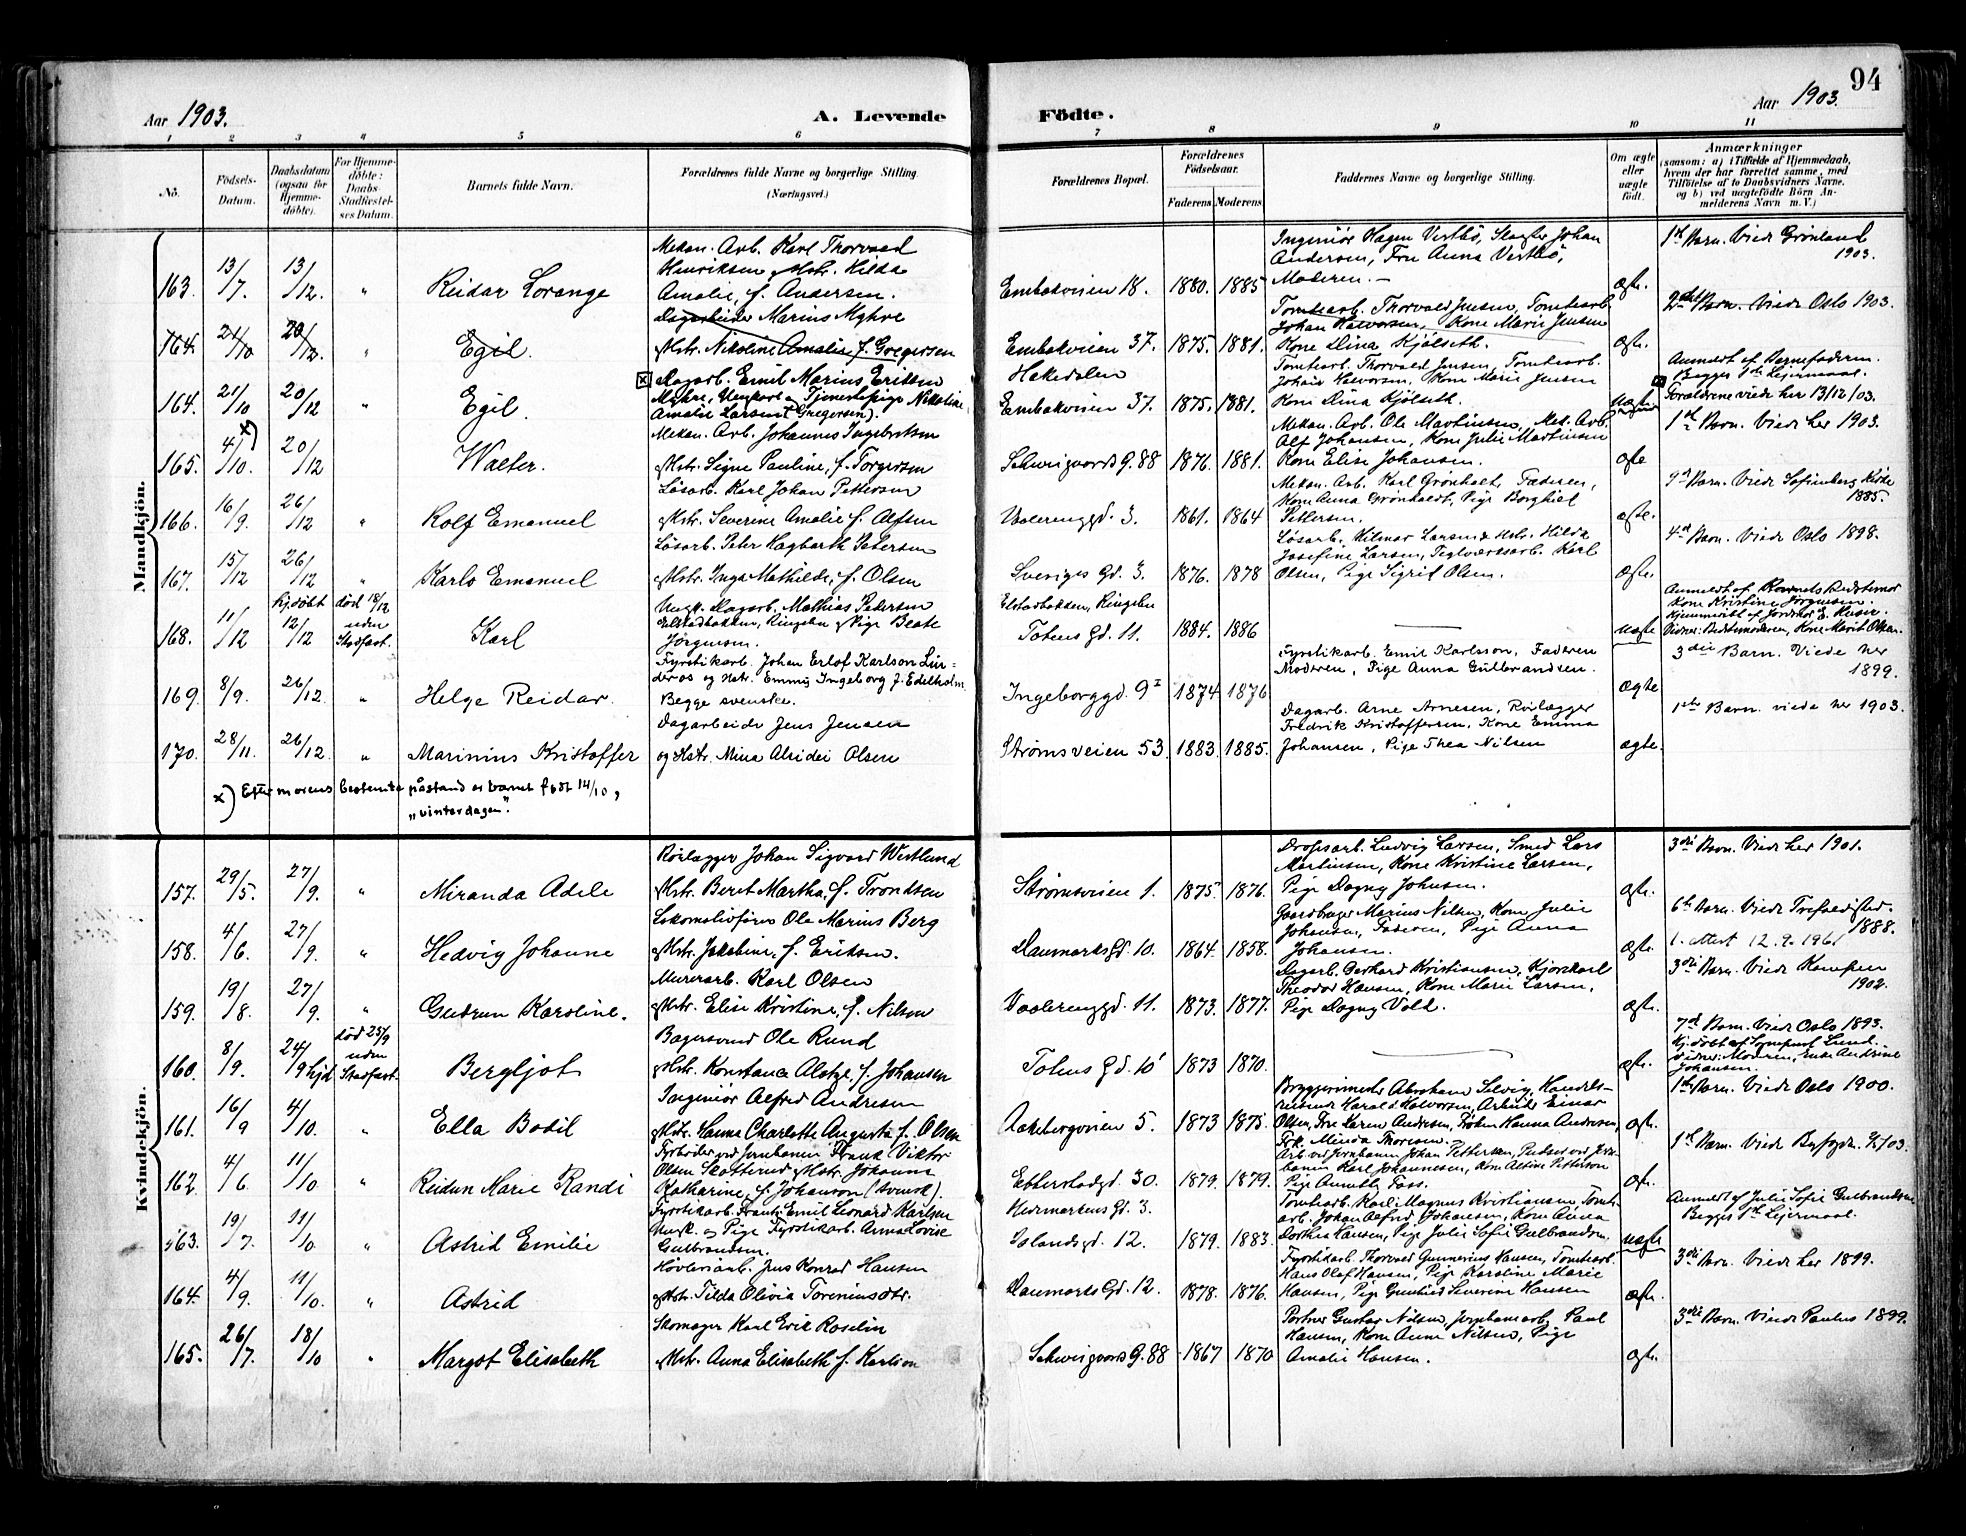 94
Aar 1903.
A. Levende
Födte.
Aar 1903.
1 2 3 4 5 6 7 8 9 10 11
No.
Födsels-
Datum.
Daabsdatum
(ogsaa for
Hjemme-
döbte).
For Hjemme-
döbte:
Daabs-
Stadfæstel-
ses Datum.
Barnets fulde Navn.
Forældrenes fulde Navne og borgerlige Stilling.
(Næringsvei.)
Forældrenes Bopæl.
Forældrenes
Födselsaar.
Faderens. Moderens.
Faddernes Navne og borgerlige Stilling.
Om ægte
eller
uægte
født.
Anmærkninger
(saasom: a) i Tilfælde af Hjemmedaab,
hvem der har forrettet samme, med
Tilföielse af to Daabsvidners Navne,
og b) ved uægtefödte Börn An-
melderens Navn m. V.)
Mandkjön.
163. 13/7. 13/12. " Reidar Lorange
Mekan. Arb. Karl Thorvald
Henriksen og Hstr. Hilda
Amalie, f. Andersen.
Enebakveien 18. 1880. 1885
Ingeniör Hagen Vestbö, Slagter Johan
Andersen, Fru Anna Vestbö,
Moderen. —
ægte.
1st Barn. Viede Grönland
1903.
164. 21/10 20/12. " Egil.
Dagarbeider Marius Myhre
og Hstr. Nikoline Amalie f. Gregersen
Enebakveien 37. 1875. 1881.
Tomtearb. Thorvald Jensen, Tomtearb.
Johan Halvorsen, Kone Marie Jensen
Kone Dina Kjölseth.
ægte.
2det Barn. Viede Oslo 1903.
164. 21/10 20/12 " Egil.
Dagarb. Emil Marius Eriksen
Myhre, Ungkarl og Tjenestepige Nikoline
Amalie Larsen (Gregersen).
Hakedalen
Enebakveien 37. 1875. 1881.
Tomtearb. Thorvald Jensen, Tomtearb.
Johan Halvorsen, Kone Marie Jensen
Kone Dina Kjölseth.
uægte
Anmeldt af Barnefaderen.
Begges 1ste Leiermaal.
Forældrene viede her 13/12/03.
165. 4/10. x) 20/12 Walter.
Mekan. Arb. Johannes Ingebretsen
og Hstr. Signe Pauline, f. Torgersen
Schweigaards G. 88 1876. 1881.
Mekan. Arb. Ole Martinsen, Mek. Arb.
Alf Johansen, Kone Julie Martinsen
Kone Elise Johansen.
ægte
1st Barn. Viede her 1903.
166. 16/9. 26/12 " Rolf Emanuel
Løsarb. Karl Johan Pettersen
og Hstr. Severine Amalie f. Alfsen
Vaalerenggd. 3. 1861. 1864
Mekan. Arb. Karl Grönholt, Faderen,
Kone Anna Grönholdt, Pige Borghild
Pettersen.
ægte.
9d Barn. Viede Sofienberg Kirke
1885.
167. 15/12 26/12 " Karlo Emanuel
Løsarb. Peter Hagbarth Petersen
og Hstr. Inga Mathilde, f. Olsen
Sveriges Gd. 3. 1876. 1878
Løsarb. Hilmar Larsen & Hstr. Hilda
Josefine Larsen, Teglværksarb. Karl
Olsen, Pige Sigrid Olsen.
ægte.
4d Barn. Viede Oslo 1898.
168. 11/12 hj.döbt 12/12 död 18/12
uden
Stadfæst.
Karl
Ungk. Dagarb. Mathias Pedersen
Elstadbakken, Ringebu og Pige Beate
Jörgensen.
Elstadbakken, Ringebu
Totens Gd. 11. 1884. 1886
uægte
Anmeldt af Barnets Bedstemor
Kone Kristine Jörgensen.
Hjemmedöbt af Jordmor E. Huser.
Vidner: Bedstemoderen, Kone Marit Olsen.
169. 8/9. 26/12. " Helge Reidar.
Fyrstikarb. Johan Erlof Karlson Lin-
deros og Hstr. Emmy Ingeborg f. Edelholm
Begge svenske.
Ingeborggd. 9 I 1874 1876
Fyrstikarb. Emil Karlsson, Faderen
Moderen, Pige Anna Gulbrandsen.
ægte
3die Barn. Viede her
1899.
170. 28/11. 26/12. " Marinius Kristoffer
Dagarbeider Jens Jensen
og Hstr. Mina Alvidei Olsen
Strømsveien 53 1883. 1885.
Dagarb. Arne Arnesen, Rørlægger
Fredrik Kristoffersen, Kone Emma
Johansen, Pige Thea Nilsen
ægte
1ste Barn. viede her 1903.
x) Efter morens bestemte påstand er barnet født 14/10,
"vinterdagen".
Kvindekjön.
157. 29/5. 27/9. " Miranda Adele
Rørlægger Johan Sigvard Westlund
og Hstr. Beret Martha, f. Trondsen
Strømsveien 1. 1875. 1876.
Ludvig Larsen, Smed Lars
Martinsen, Kone Kristine Larsen,
Pige Dagny Johnsen.
ægte.
3die Barn. Viede her 1901.
158. 4/6. 27/9. " Hedvig Johanne
Lokomotivförer Ole Marius Berg
og Hstr. Jakobine, f. Eriksen.
Danmarksgd. 10. 1864. 1858.
Gaardbruger Marius Nilsen, Kone Julie
Johansen, Faderen, Pige Anna
Johansen.
ægte.
6te Barn. Viede Trefoldighed.
1888.
1. attest 12.9.1961
159. 19/8. 27/9. " Gudrun Karoline.
Murerarb. Karl Olsen
og Hstr. Elise Kristine, f. Nilsen
Vaalerenggd. 11. 1873. 1877.
Dagarb. Gerhard Kristiansen, Kjørekarl
Theodor Hansen, Kone Marie Larsen,
Pige Dagny Vold.
ægte.
3die Barn. Viede Kampen
1902.
160. 8/9. 24/9 hjd död 25/9
uden
Stadfæst.
Bergljot
Bagersvend Ole Rund
og Hstr. Konstance Alette, f. Johansen
Totens Gd. 10 1873 1870.
ægte.
7d Barn. Viede Oslo 1893.
Hj. döbt af Sognepræst Lund.
Vidner: Moderen, Enke Andrine
Johansen.
161. 16/9 4/10. " Ella Bodil
Ingeniör Alfred Andresen
og Hstr. Hanna Charlotte Augusta f. Olsen
Aakebergveien 5. 1873 1875.
Bryggerimester Abraham Selvig, Handels-
reisende Harald Halvorsen, Arbeider Einar
Olsen, Fru Karen Andresen, Fröken Hanna Andresen,
Frk. Minda Thoresen.
ægte.
1ste Barn. Viede Oslo 1900.
162. 4/6. 11/10 " Reidun Marie Randi
Fyrböder ved Jernbanen Frank Viktor
Olsen Skotterud og Hstr. Johanne
Katharine, f. Johanson (svensk).
Etterstadgd. 30. 1879. 1879.
Arb. ved Jernbanen Johan Pettersen, Pudser ved Jern-
banen Karl Johannesen, Kone Alvine Pettersen
Pige Annette Foss.
ægte.
1st Barn. Viede 03.
163. 19/7. 11/10 " Astrid Emilie
Fyrstikarb. Frants Emil Leonard Karlsen
Ungk. og Pige Fyrstikarb. Anna Lovise
Gulbrandsen.
Hedemarkens Gd. 3.
Islandsgd. 12. 1879. 1883.
Tomtearb. Karl Magnus Kristiansen, Tomt-
arb. Johan Alfred Johansen, Kone Anna
Dorthea Hansen, Pige Julie Sofie Gulbrandsen.
uægte
Anmeldt af Julie Sofie Gulbrandsen
Begges 1ste Leiermaal.
164. 4/9. 11/10. " Astrid
Høvleriarb. Jens Konrad Hansen
og Hstr. Tilda Olivia Toreniusdtr.
Danmarks Gd. 12. 1878. 1876.
Fyrstikarb. Thorvald Gunnerius Hansen, Tomtearb.
Hans Olaf Hansen, Pige Karoline Marie
Hansen, Pige Gunhild Severine Hansen
ægte.
3die Barn. Viede her 1899.
165. 26/7. 18/10 " Margot Elisabeth
Skomager Karl Erik Roselin
og Hstr. Anna Elisabeth f. Karlson
Schweigaards G. 88 1867 1870
Portner Gustav Nilsen, Jernbanearb. Paul
Hansen, Kone Anne Nilsen, Pige
Amalie Hansen.
ægte.
3die Barn. Viede Paulus 1899.